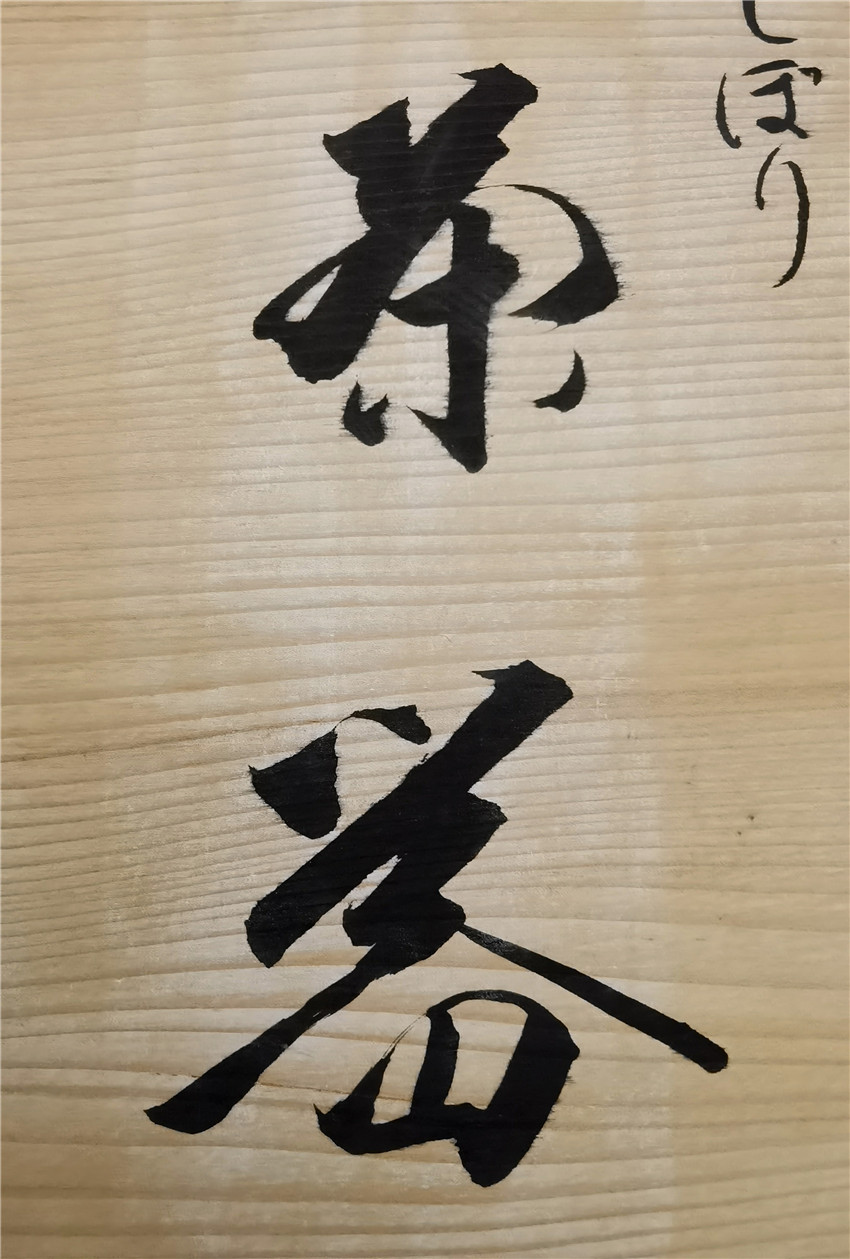 しぼり
茶番